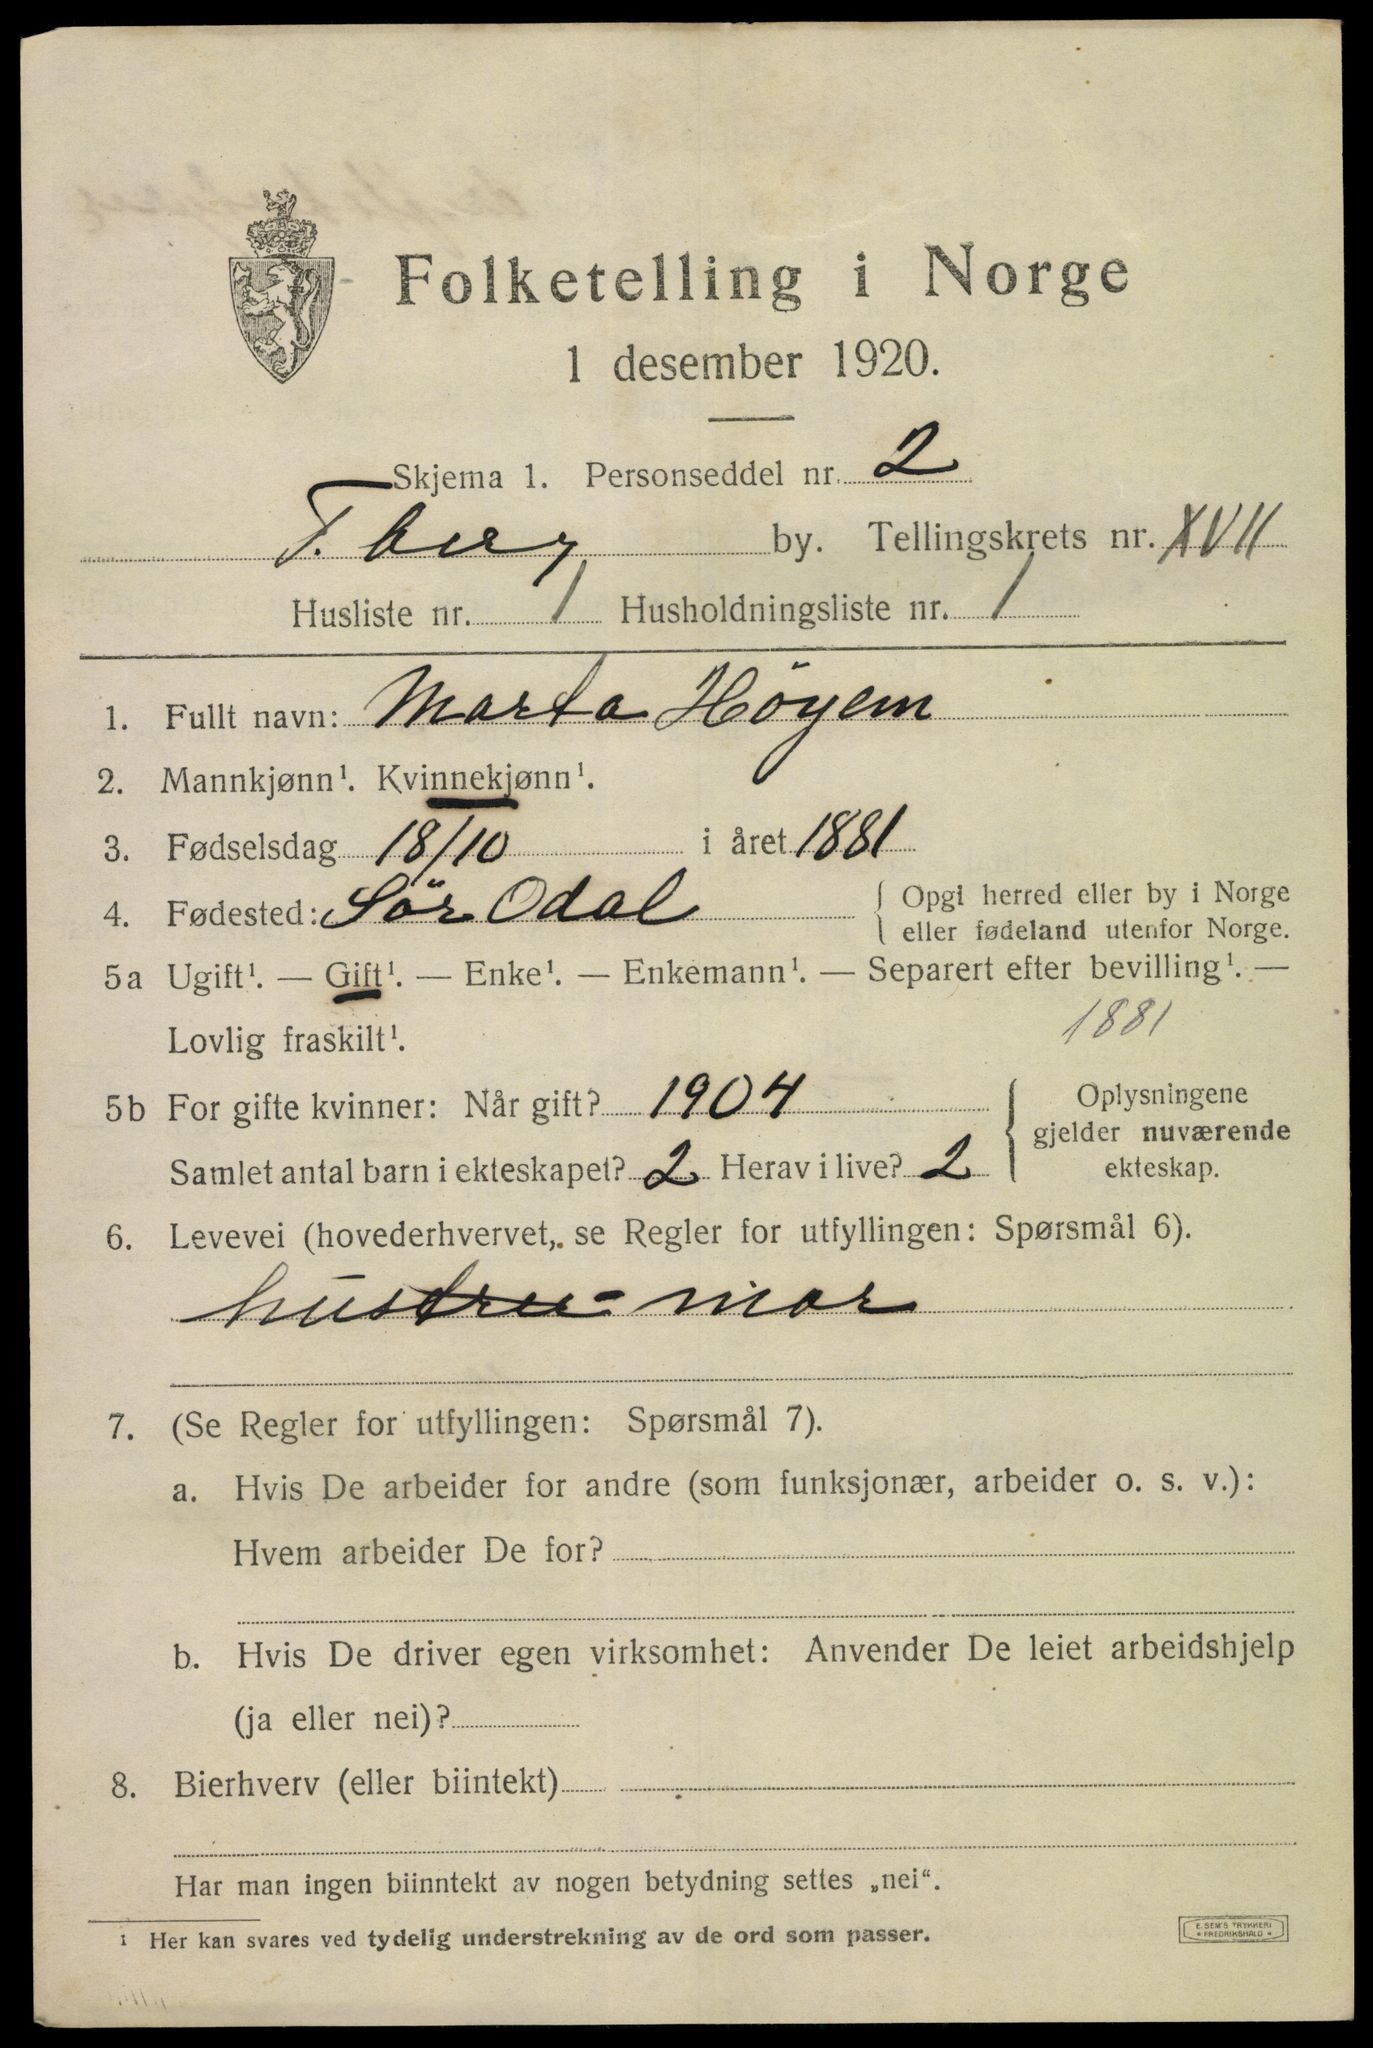 Folketelling i Norge
1 desember 1920.
Skjema 1. Personseddel nr. 2
T.berg by. Tellingskrets nr. XVII
Husliste nr. 1 Husholdningsliste nr. 1
1. Fullt navn: Marta Höyem
2. Mannkjønn¹. Kvinnekjønn¹.
3. Fødselsdag 18/10 i året 1881
4. Fødested: Sör Odal { Opgi herred eller by i Norge
eller fødeland utenfor Norge.
5a Ugift¹. — Gift¹. — Enke¹. — Enkemann¹. — Separert efter bevilling¹. —
Lovlig fraskilt¹. 1881
5b For gifte kvinner: Når gift? 1904
Samlet antal barn i ekteskapet? 2 Herav i live? 2
{ Oplysningene
gjelder nuværende
ekteskap.
6. Levevei (hovederhvervet, se Regler for utfyllingen: Spørsmål 6).
hustru - mor
7. (Se Regler for utfyllingen: Spørsmål 7).
a. Hvis De arbeider for andre (som funksjonær, arbeider o. s. v.):
Hvem arbeider De for?
b. Hvis De driver egen virksomhet: Anvender De leiet arbeidshjelp
(ja eller nei)?
8. Bierhverv (eller biintekt)
Har man ingen biinntekt av nogen betydning settes „nei“.
1 Her kan svares ved tydelig understrekning av de ord som passer.
E. SEM'S TRYKKERI
* FREDRIKSHALD *